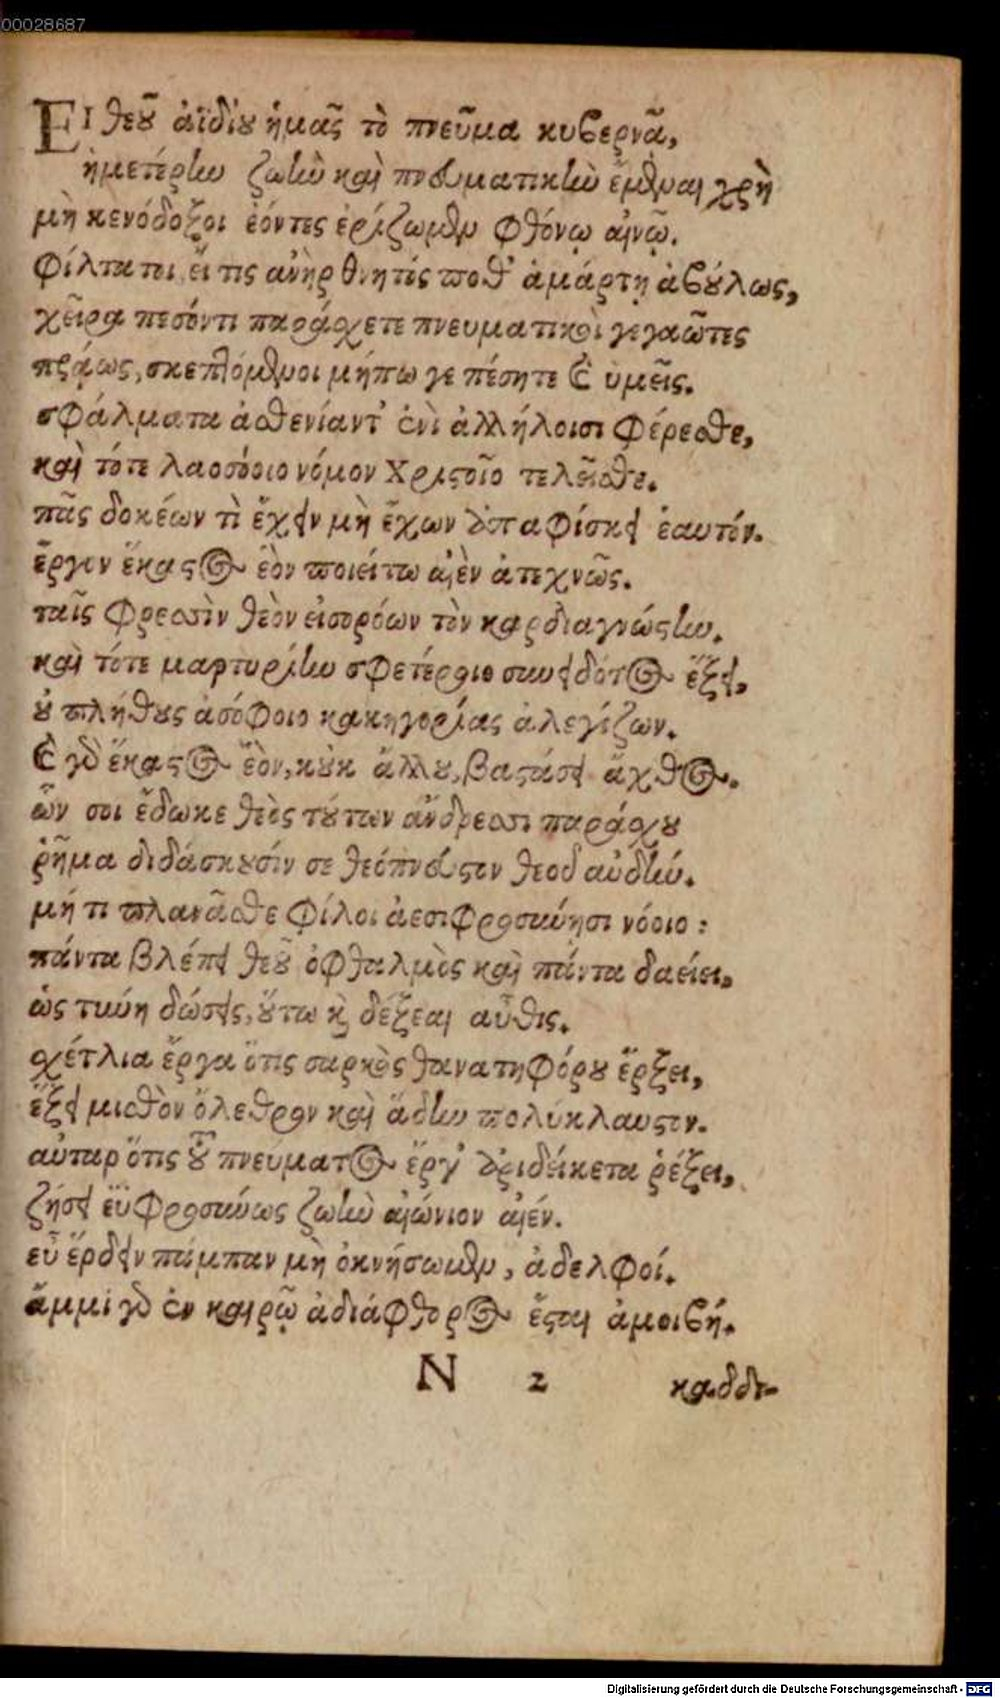 00028687
Εἰ θεοῦ ἀϊδίου ἡμᾶς τὸ πνεῦμα κυβερνᾶ,
ἡμετέρην ζωὴν καὶ πνευματικὴν ἔμεναι χρὴ
μὴ κενόδοξοι ἐόντες ἐρίζωμεν φθόνῳ αἰνῷ.
φίλτατοι εἴ τις ἀνὴρ θνητός ποθ' ἁμάρτῃ ἀβούλως,
χεῖρα πεσόντι παράσχετε πνευματικοὶ γεγαῶτες
πρᾴως, σκεπτόμενοι μήπω γε πέσητε καὶ ὑμεῖς.
σφάλματα ἀσθενίαντ' ἐνὶ ἀλλήλοισι φέρεσθε,
καὶ τότε λαοσόοιο νόμον Χριστοῖο τελεῖσθε.
πᾶς δοκέων τὶ ἔχειν μὴ ἔχων ἀπαφίσκει ἑαυτόν.
ἔργον ἕκαστος ἑὸν ποιείτω αἰὲν ἀτεχνῶς.
ταῖς φρεσὶν θεὸν εἰσορόων τὸν καρδιαγνώστην.
καὶ τότε μαρτυρίην σφετέροιο συνειδότος ἕξει,
οὐ πλήθους ἀσόφοιο κακηγορίας ἀλεγίζων.
καὶ γὰρ ἕκαστος ἑὸν, κοὐκ ἄλλου, βαστάσει ἄχθος.
ὧν σοι ἔδωκε θεὸς τούτων ἄνδρεσσι παράσχου
ῥῆμα διδάσκουσίν σε θεόπνευστον θεοδαυδήν.
μή τι πλανᾶσθε φίλοι ἀεσιφροσύνησι νόοιο:
πάντα βλέπει θεοῦ ὀφθαλμὸς καὶ πάντα δαείει,
ὡς τύνη δώσεις, οὕτω καὶ δέξεαι αὖθις.
σχέτλια ἔργα ὅτις σαρκὸς θανατηφόρου ἔρξει,
ἕξει μισθὸν ὄλεθρον καὶ ἅδην πολύκλαυστον.
αὐτὰρ ὅτις τοῦ πνεύματος ἔργ' ἀριδείκετα ῥέξει,
ζήσει ἐϋφροσύνως ζωὴν αἰώνιον αἰέν.
εὖ ἔρδειν πάμπαν μὴ ὀκνήσωμεν, ἀδελφοί.
ἄμμι γὰρ ἐν καιρῷ ἀδιάφθορος ἔσται ἀμοιβή.
N 2 καδδε-
Digitalisierung gefördert durch die Deutsche Forschungsgemeinschaft - DFG